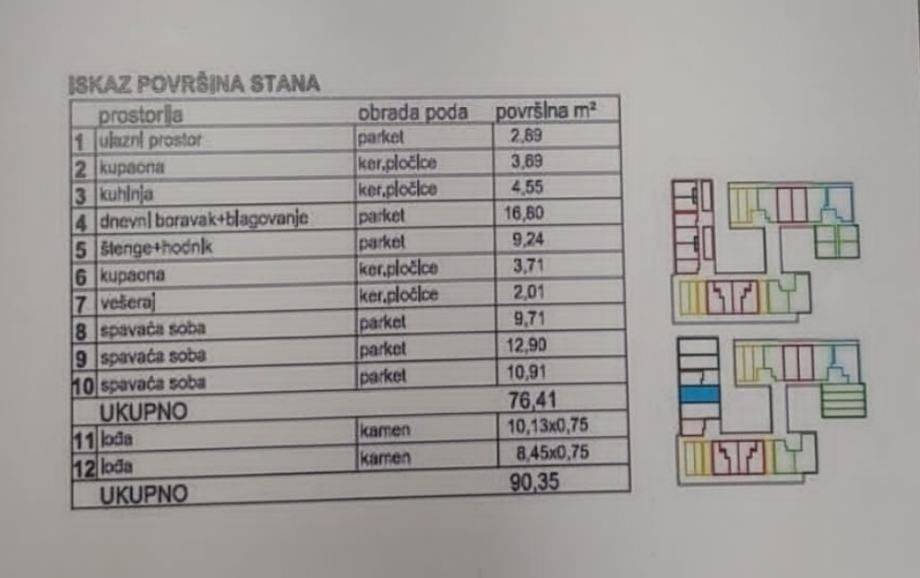 ISKAZ POVRŠINA STANA
prostorija obrada poda površina m²
1 ulazni prostor parket 2,89
2 kupaona ker.pločice 3,69
3 kuhinja ker.pločice 4,55
4 dnevni boravak+blagovanje parket 16,80
5 štenge+hodnik parket 9,24
6 kupaona ker.pločice 3,71
7 vešeraj ker.pločice 2,01
8 spavaća soba parket 9,71
9 spavaća soba parket 12,90
10 spavaća soba parket 10,91
UKUPNO 76,41
11 lođa kamen 10,13x0,75
12 lođa kamen 8,45x0,75
UKUPNO 90,35